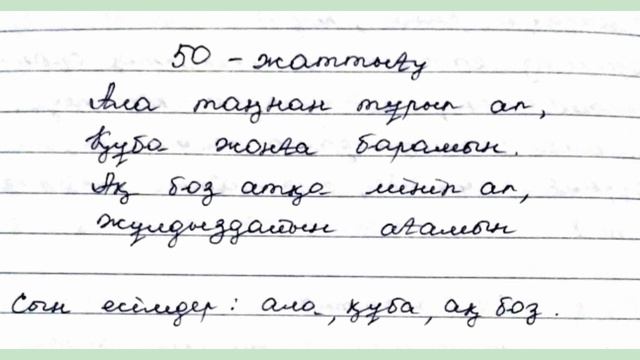 50 - жаттығу
Ала таңнан тұрып ап,
Құба жонға барамын.
Ақ боз атқа мініп ап,
Жұлдыздайын ағамын
Сын есімдер: ала, құба, ақ боз.